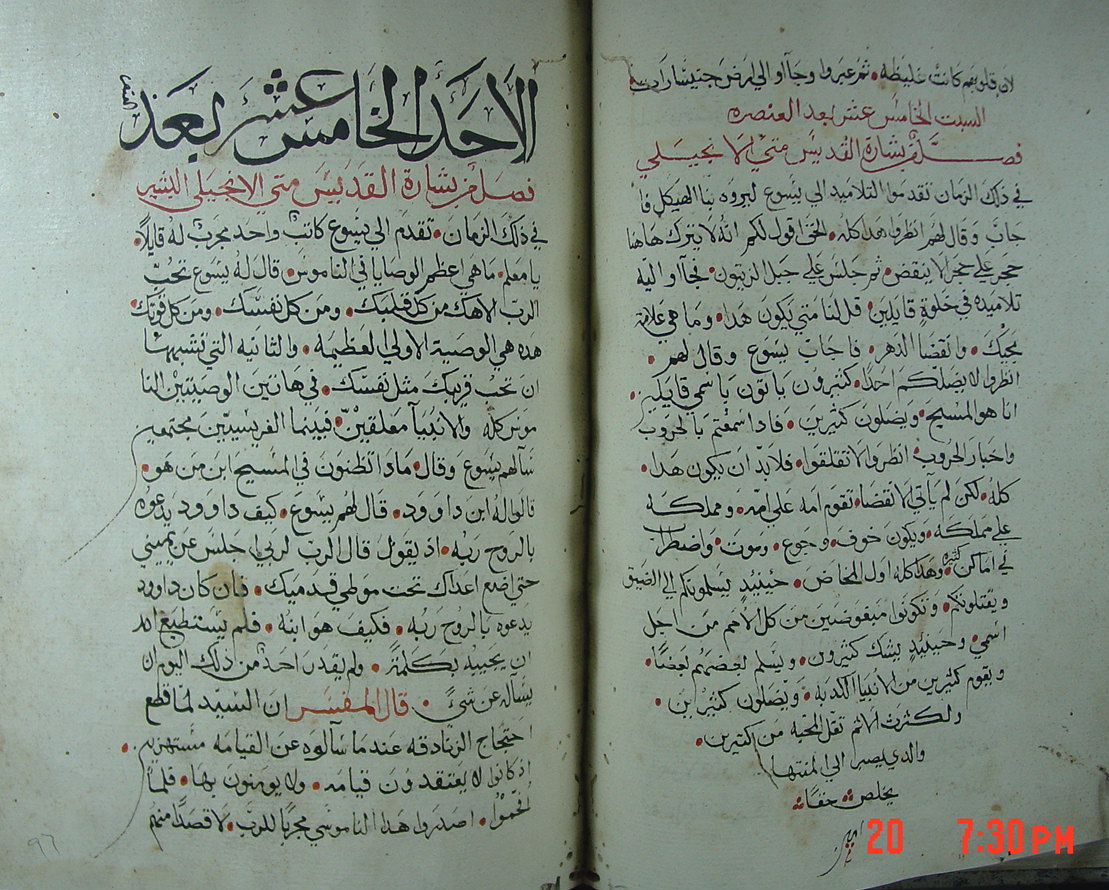 لان قلوبهم كانت غليظه • ثم عبروا وجاآوا الي ارض جنيسارات
السبت الخامس عشر بعد العنصره
فصل من بشارة القديس متي الانجيلي
في ذلك الزمان تقدموا التلاميد الي يسوع ليروه بنا الهيكل فا
جاب وقال لهم انظروا هدا كله • الحق اقول لكم انه لا يترك هاهنا
حجر علي حجر الا ينقض • ثم جلس علي جبل الزيتون • فجاآو اليه
تلاميده في خلوة قايلين • قل لنا متي يكون هدا • وما هي علامة
مجيك • وانقضا الدهر • فاجاب يسوع وقال لهم •
انظروا لا يضلكم احدا • كثيرون ياتون باسمي قايلين •
انا هو المسيح • ويضلون كثيرين • فادا سمعتم بالحروب
واخبار الحروب • انظروا لا تقلقوا • فلابد ان يكون هدا •
كله • لكن لم ياتي الانقضا • تقوم امه علي امه • ومملكه
علي مملكه • ويكون خوف • وجوع • وموت • واضطراب
في اماكن كثيره • وهدا كله اول المخاض • حينيد يسلمونكم الي الضيق
ويقتلونكم • وتكونوا مبغوضين من كل الامم من اجل
اسمي • وحينيد يشك كثيرون • ويسلم بعضهم بعضا •
ويقوم كثيرين من الانبيا الكدبه • ويضلون كثيرين •
ولكثرت الاثم تقل المحبه من كثيرين •
والدي يصبر الي المنتها
يخلص • حقا •
الاحد الخامس عشر بعد
فصل من بشارة القديس متي الانجيلي البشير
في ذلك الزمان • تقدم الي يسوع كاتب واحد مجرب له قايلا •
يا معلم • ما هي اعظم الوصايا في الناموس • قال له يسوع تحب
الرب الاهك من كل قلبك • ومن كل نفسك • ومن كل قوتك
هده هي الوصية الاولي العظيمه • والثانيه التي تشبهها
ان تحب قريبك مثل نفسك • في هاتين الوصيتين النا
موس كله والانبيآ معلقين • فبينما الفريسيين مجتمعين
سآلهم يسوع وقال • مادا تظنون في المسيح ابن من هو •
قالوا له ابن داوود • قال لهم يسوع • كيف داوود يدعوه
بالروح ربه • اد يقول قال الرب لربي اجلس عن يميني
حتي اضع اعداك تحت موطي قدميك • فان كان داوود
يدعوه بالروح ربه • فكيف هو ابنه • فلم يستطيع احد
ان يجيبه بكلمة • ولم يقدر احد من دلك اليوم ان
يسآله عن شي • قال المفسر ان السيد لما قطع
احتجاج الزنادقه عندما سآلوه عن القيامه مستهزيين •
اد كانوا لا يعتقدون قيامه • ولا يومنون بها • فلما
افحموا • اصدروا هدا الناموسي مجربا للرب • لا قصدا منهم
97
20 7:30 PM